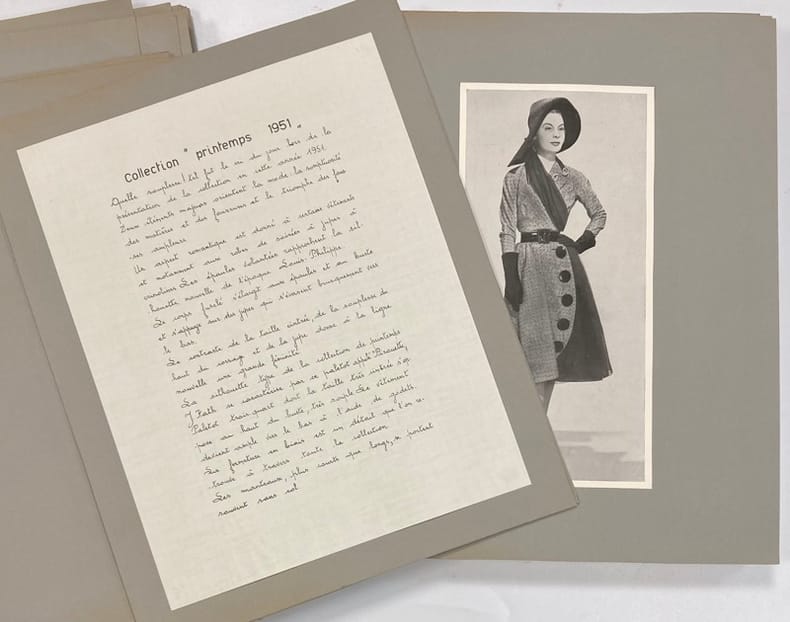 Collection " printemps 1951 "
Quelle souplesse! tel fut le cri du jour lors de la
présentation de la collection en cette année 1951.
Deux éléments majeurs orientent la mode: la somptuosité
des matières et des fourrures et le triomphe des
ses ampleurs
Un aspect romantique est donné à certains vêtements
et notamment aux robes de soirées à jupes à
crinolines. Les épaules volantées rapprochent la sil-
houette nouvelle de l'époque Louis-Philippe.
Le corps fuselé s'élargit aux épaules et au buste
et s'appuye sur des jupes qui s'évasent brusquement vers
le bas.
Le contraste de la taille cintrée, de la souplesse du
haut du corsage et de la jupe donne à la ligne
nouvelle une grande féminité.
La silhouette type de la collection de printemps
J. Fath se caractérise par ce paletot appelé "Pirouette",
Paletot trois-quart dont la taille très cintrée s'op-
pose au haut du buste, très souple. Le vêtement
devient souple vers le bas à l'aide de godets.
La fermeture en biais est un détail que l'on re-
trouve à travers toute la collection.
Les manteaux, plus courts que longs, se portent
souvent sans col